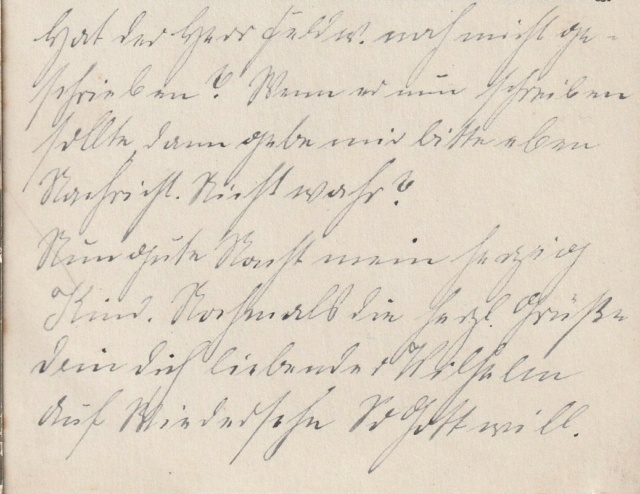 Hat der Herr Feldw. noch nicht ge-
schrieben? Wenn er nun schreiben
sollte, dann gebe mir bitte eben
Nachricht. Nicht wahr?
Nun gute Nacht mein herzig
Kind. Nochmals die herzl. Grüße
dein dich liebender Wilhelm
Auf Wiedersehn So Gott will.